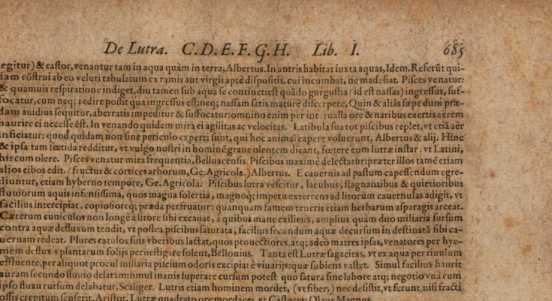 De Lutra. C.D.E.F.G.H. Lib. I. 685
egitur) & castor, venantur tam in aqua quàm in terra, Albertus. In antris habitat iuxta aquas, Idem. Referũt qui-
iam cõstrui ab eo veluti tabulatum ex ramis aut virgis aptè dispositis, cui incumbat, ne madefiat. Pisces venatur:
& quamuis respiratione indiget, diu tamen sub aqua se continet
focatur, cum neq; redire possit qua ingressus est: neq; nassam satis maturè discerpere. Quin & alias sæpe dum præ-
dam auidius sequitur, aberratis impeditur & suffocatur: omnino enim per interualla ore & naribus exertis aërem
haurire ei necesse est. In venando quidem mira ei agilitas ac velocitas. Latibula sua tot piscibus replet, vt etiã aër
inficiatur: quod quidam non sine periculo experti sunt, qui hoc animal capere voluerunt, Albertus & alij. Hinc
& ipsa tam fœtida redditur, vt vulgo nostri in hominẽ graue olentem dicant, fœtere eum lutræ instar. vt Latini,
hircum olere. Pisces venatur mira frequentia, Belluacensis. Piscibus maximè delectatur: præter illos tamẽ etiam
alios cibos edit. fructus & cortices arborum, Ge. Agricola. Albertus. E cauernis ad pastum capessendum egre-
diuntur, etiam hyberno tempore, Ge. Agricola. Piscibus lutra vescitur, lacubus, stagnantibus & quietioribus
fluuiorum aquis infestissima, quos magna solertia, magnoq; impetu externen ad litorum cauernulas adigit, vt
facilius intercipiat, copiosiorq; præda perfruatur: quanquam famem teneris etiam herbarum asparagis arceat.
Cæterum cuniculos non longè à litore sibi excauat, à quibus manè exiliens, amplius quàm duo miliaria sursum
contra aquæ defluxum tendit, vt postea piscibus saturata, facilius secundum aquæ decursum in destinatã sibi ca-
uernam redeat. Plures catulos suis vberibus lactat, quos prouectiores, atq; adeò matres ipsas, venatores per hye-
mem deflexis plantarum folijs persequi solent, Bellonius. Tanta est Lutræ sagacitas, vt ex aqua per riuulum
effluente, per aliquot procul miliaria piscium odores excipiat è viuarijs quæ subiens vastat. Simul facilius haurit
auram secundo fluuio delatam: simul inanis superare cursum potest: quo satura sine labore atq; negotio vna cum
ipso fluxu rursum delabatur, Scaliger. Lutra etiam hominem mordet, (vt fiber) nec desistit, vt ferunt, nisi fracti
crepitum senserit. Aristot. Lutræ quadrato more vt Castores, Olaus Magnus.